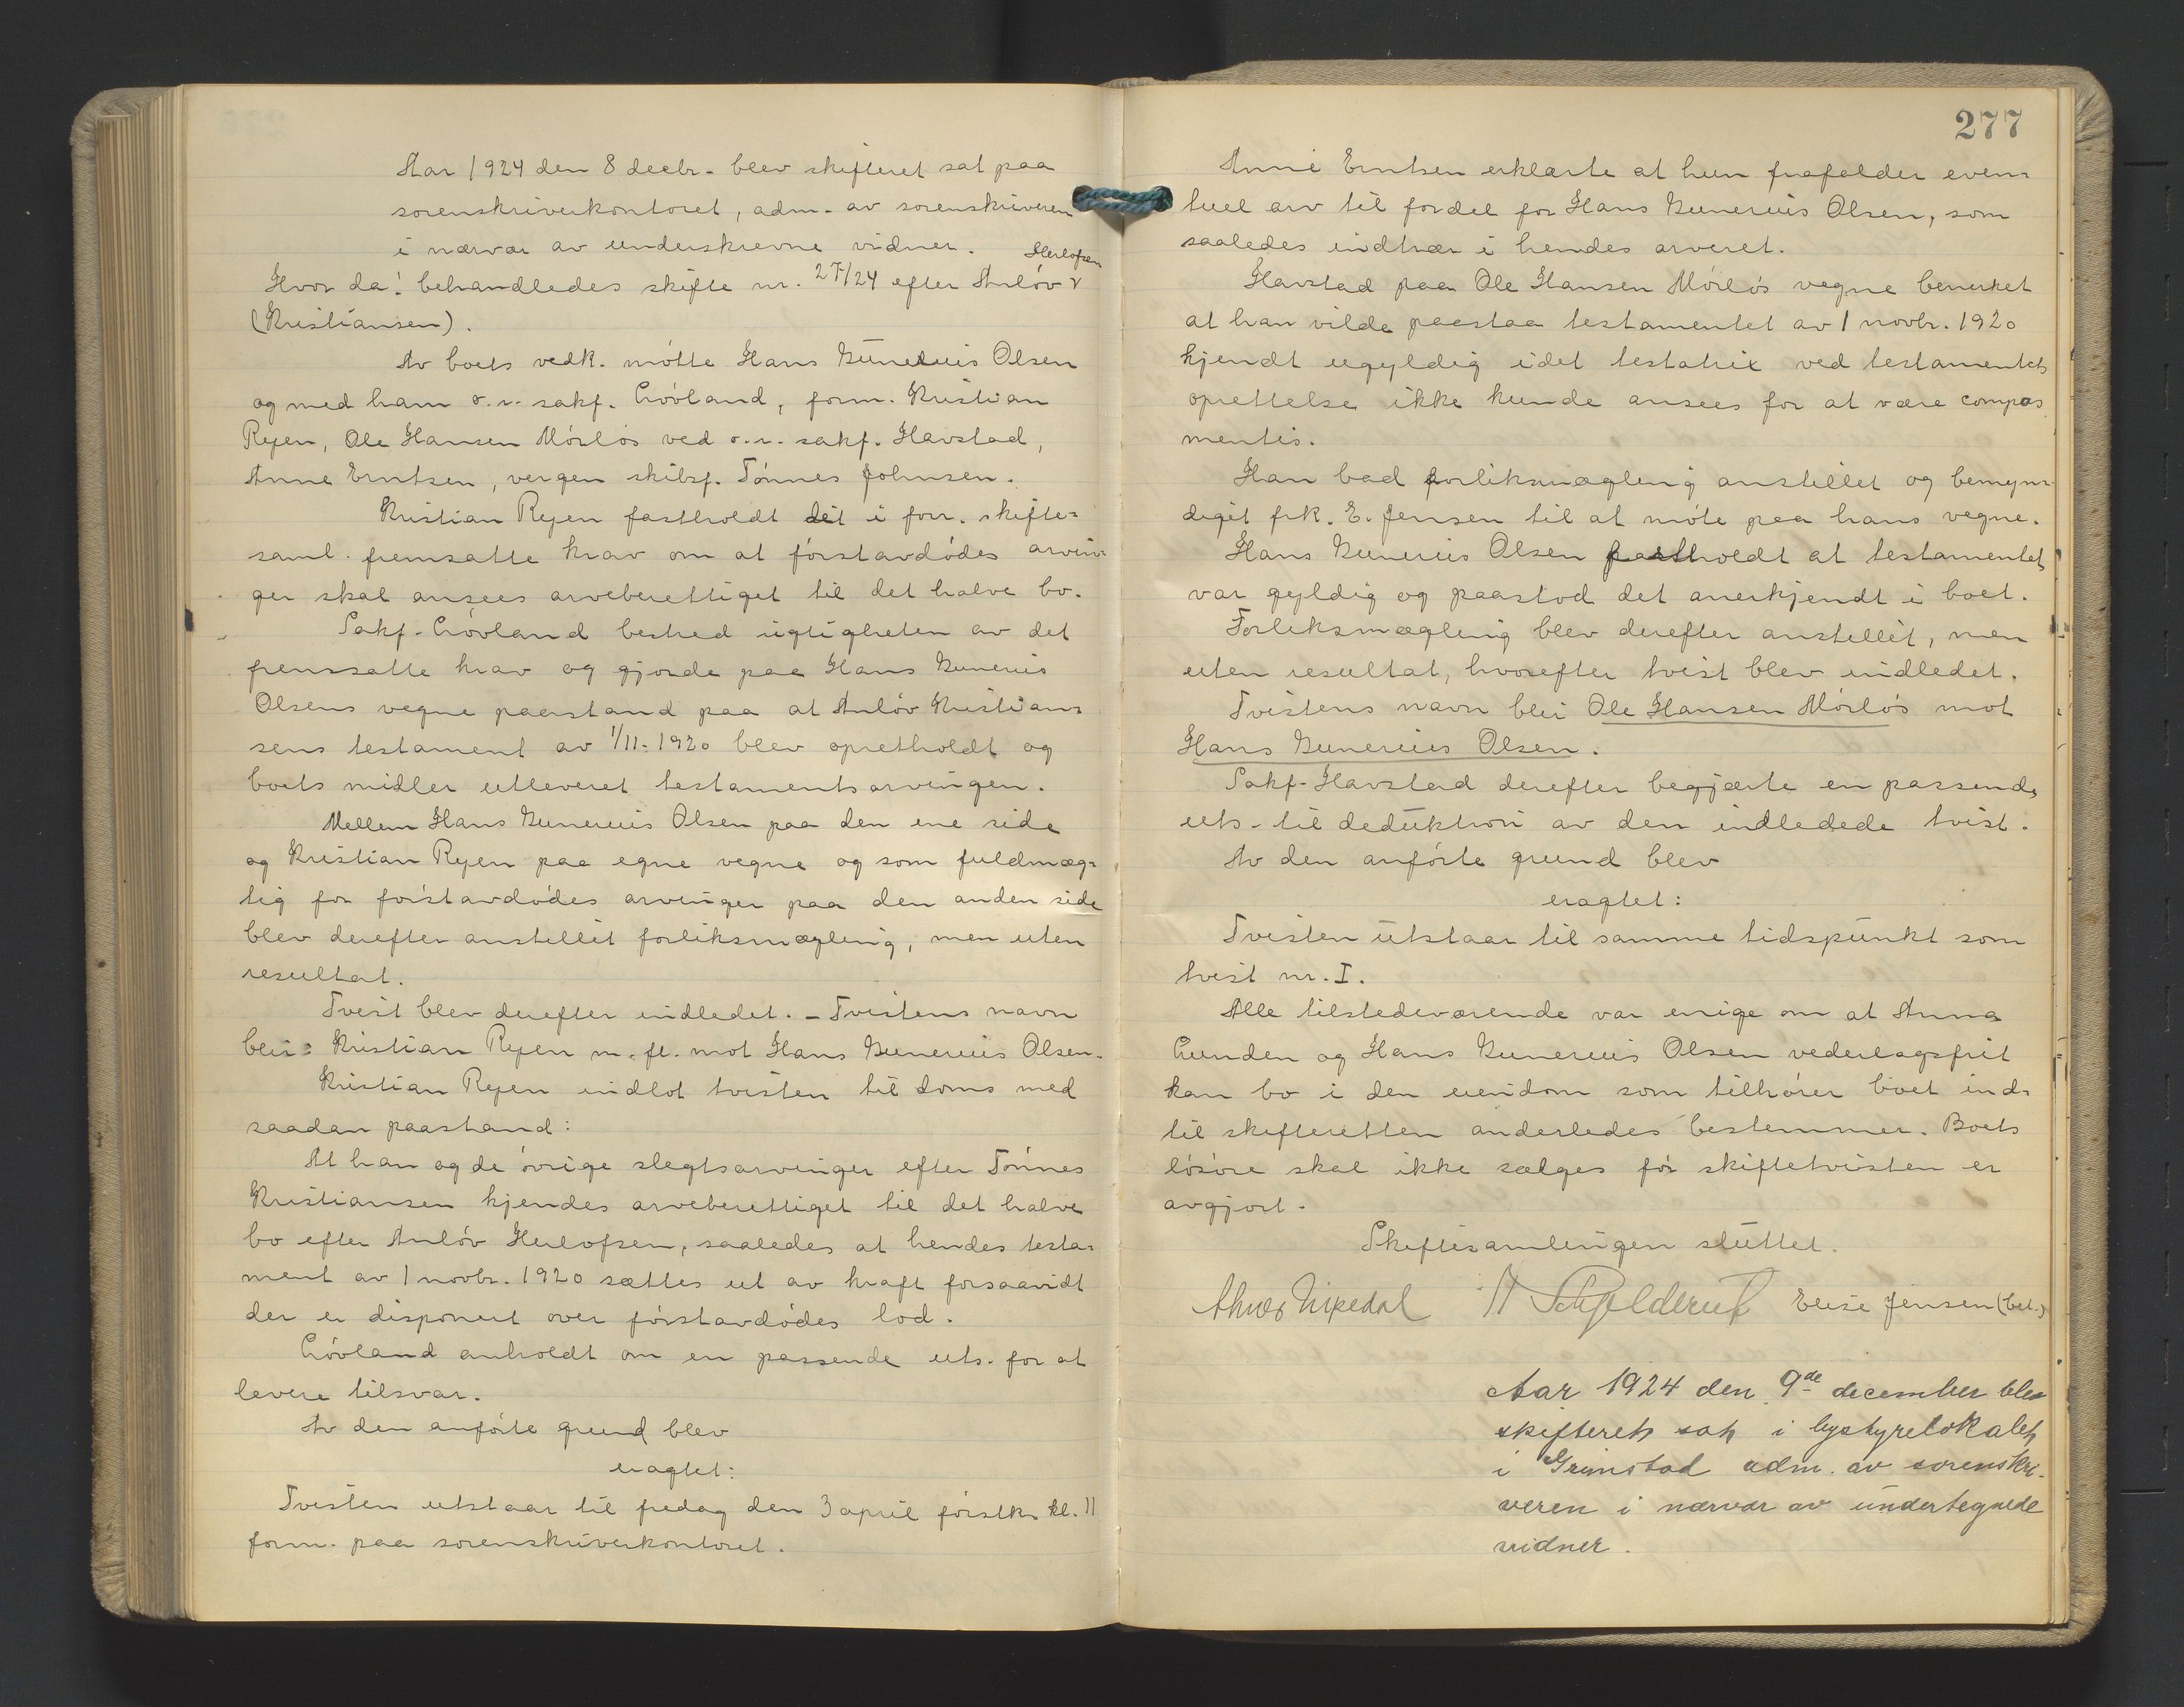 Aar 1924 den 8 decbr. blev skifteret sat paa
sorenskriverkontoret, adm. av sorenskriveren
i nærvær av underskrevne vidner.
Herlofsen
Hvor da: behandledes skifte nr. 27/24 efter Anlöv
(Kristiansen).
Av boets vedk. mötte Hans Gunerius Olsen
og med ham o.r. sakf. Lövland, form. Kristian
Ryen, Ole Hansen Mörlös ved o.r. sakf. Havstad,
Anne Erntsen, vergen skibsf. Tönnes Johnsen.
Kristian Ryen fastholdt det i forr. skifte-
saml. fremsatte krav om at förstavdödes arvin-
ger skal ansees arveberettiget til det halve bo.
Sakf. Lövland bestred rigtigheten av det
fremsatte krav og gjorde paa Hans Gunerius
Olsens vegne paastand paa at Anlöv Kristian-
sens testament av 1/11-1920 blev opretholdt og
boets midler utleveret testamentsarvingen.
Mellem Hans Gunerius Olsen paa den ene side
og Kristian Ryen paa egne vegne og som fuldmæg-
tig for förstavdödes arvinger paa den anden side
blev derefter anstillet forliksmægling, men uten
resultat.
Tvist blev derefter indledet. - Tvistens navn
blir: Kristian Ryen m. fl. mot Hans Gunerius Olsen.
Kristian Ryen indlot tvisten til doms med
saadan paastand:
At han og de övrige slegtsarvinger efter Tönnes
Kristiansen kjendes arveberettiget til det halve
bo efter Anlöv Herlofsen, saaledes at hendes testa-
ment av 1 novbr. 1920 sættes ut av kraft forsaavidt
der er disponert over förstavdödes lod.
Lövland anholdt om en passende uts. for at
levere tilsvar.
Av den anförte grund blev
eragtet:
Tvisten utstaar til fredag den 3 april förstk. kl. 11
form. paa sorenskriverkontoret.
277
Anne Erntsen erklærte at hun frafalder even-
tuel arv til fordel for Hans Gunerius Olsen, som
saaledes indtrær i hendes arveret.
Havstad paa Ole Hansen Mörlös vegne bemerket
at han vilde paastaa testamentet av 1 novbr. 1920
kjendt ugyldig idet testatrix ved testamentets
oprettelse ikke kunde ansees for at være compos
mentis.
Han bad forliksmægling anstillet og bemyn-
diget frk. E. Jensen til at möte paa hans vegne.
Hans Gunerius Olsen fastholdt at testamentet
var gyldig og paastod det anerkjendt i boet.
Forliksmægling blev derefter anstillet, men
uten resultat, hvorefter tvist blev indledet.
Tvistens navn blir Ole Hansen Mörlös mot
Hans Gunerius Olsen.
Sakf. Havstad derefter begjærte en passende
uts. til deduktion av den indledede tvist.
Av den anförte grund blev
eragtet:
Tvisten utstaar til samme tidspunkt som
tvist nr. I.
Alle tilstedeværende var enige om at Anna
Lunden og Hans Gunerius Olsen vederlagsfrit
kan bo i den eiendom som tilhörer boet ind-
til skifteretten anderledes bestemmer. Boets
lösöre skal ikke sælges för skiftetvisten er
avgjort.
Skiftesamlingen sluttet.
Nipedal Schjelderup Elise Jensen (bet.)
Aar 1924 den 9de december blev
skifteret sat i bystyrelokalet
i Grimstad adm. av sorenskri-
veren i nærvær av undertegnede
vidner.